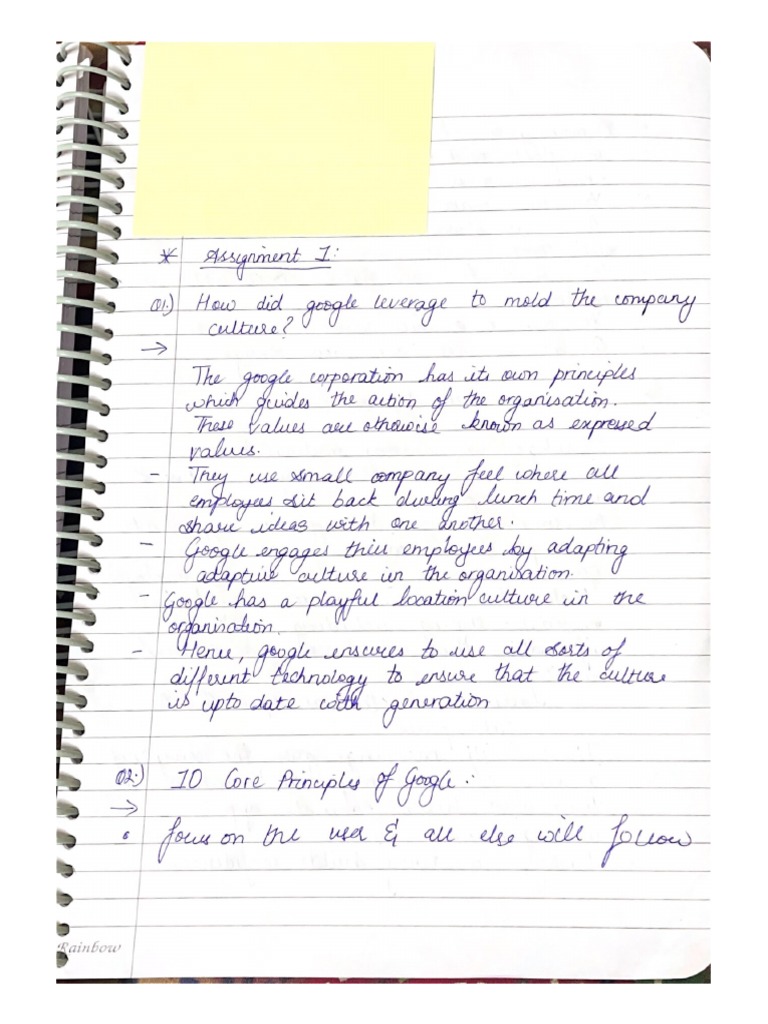 * Assignment 1:
Q1.) How did google leverage to mold the company
culture?
→
The google corporation has its own principles
which guides the action of the organisation.
These values are otherwise known as expressed
values.
- They use small company feel where all
employees sit back during lunch time and
share ideas with one another.
- Google engages thier employees by adapting
adaptive culture in the organisation.
- Google has a playful location culture in the
organisation.
- Hence, google ensures to use all sorts of
different technology to ensure that the culture
is upto date with generation
Q2.) 10 Core Principles of Google:
→
• Focus on the user & all else will follow
Rainbow